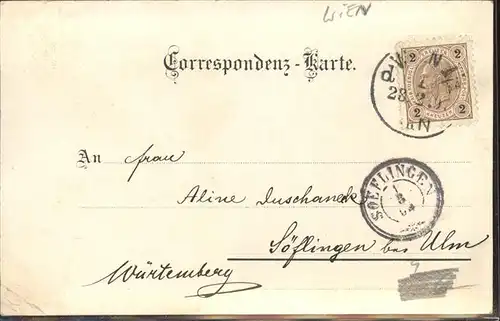 WIEN
Correspondenz-Karte.
2 2
2 2
WIEN
An Frau
Aline Duschanek
SOEFLINGEN
Söflingen bei Ulm
Württemberg